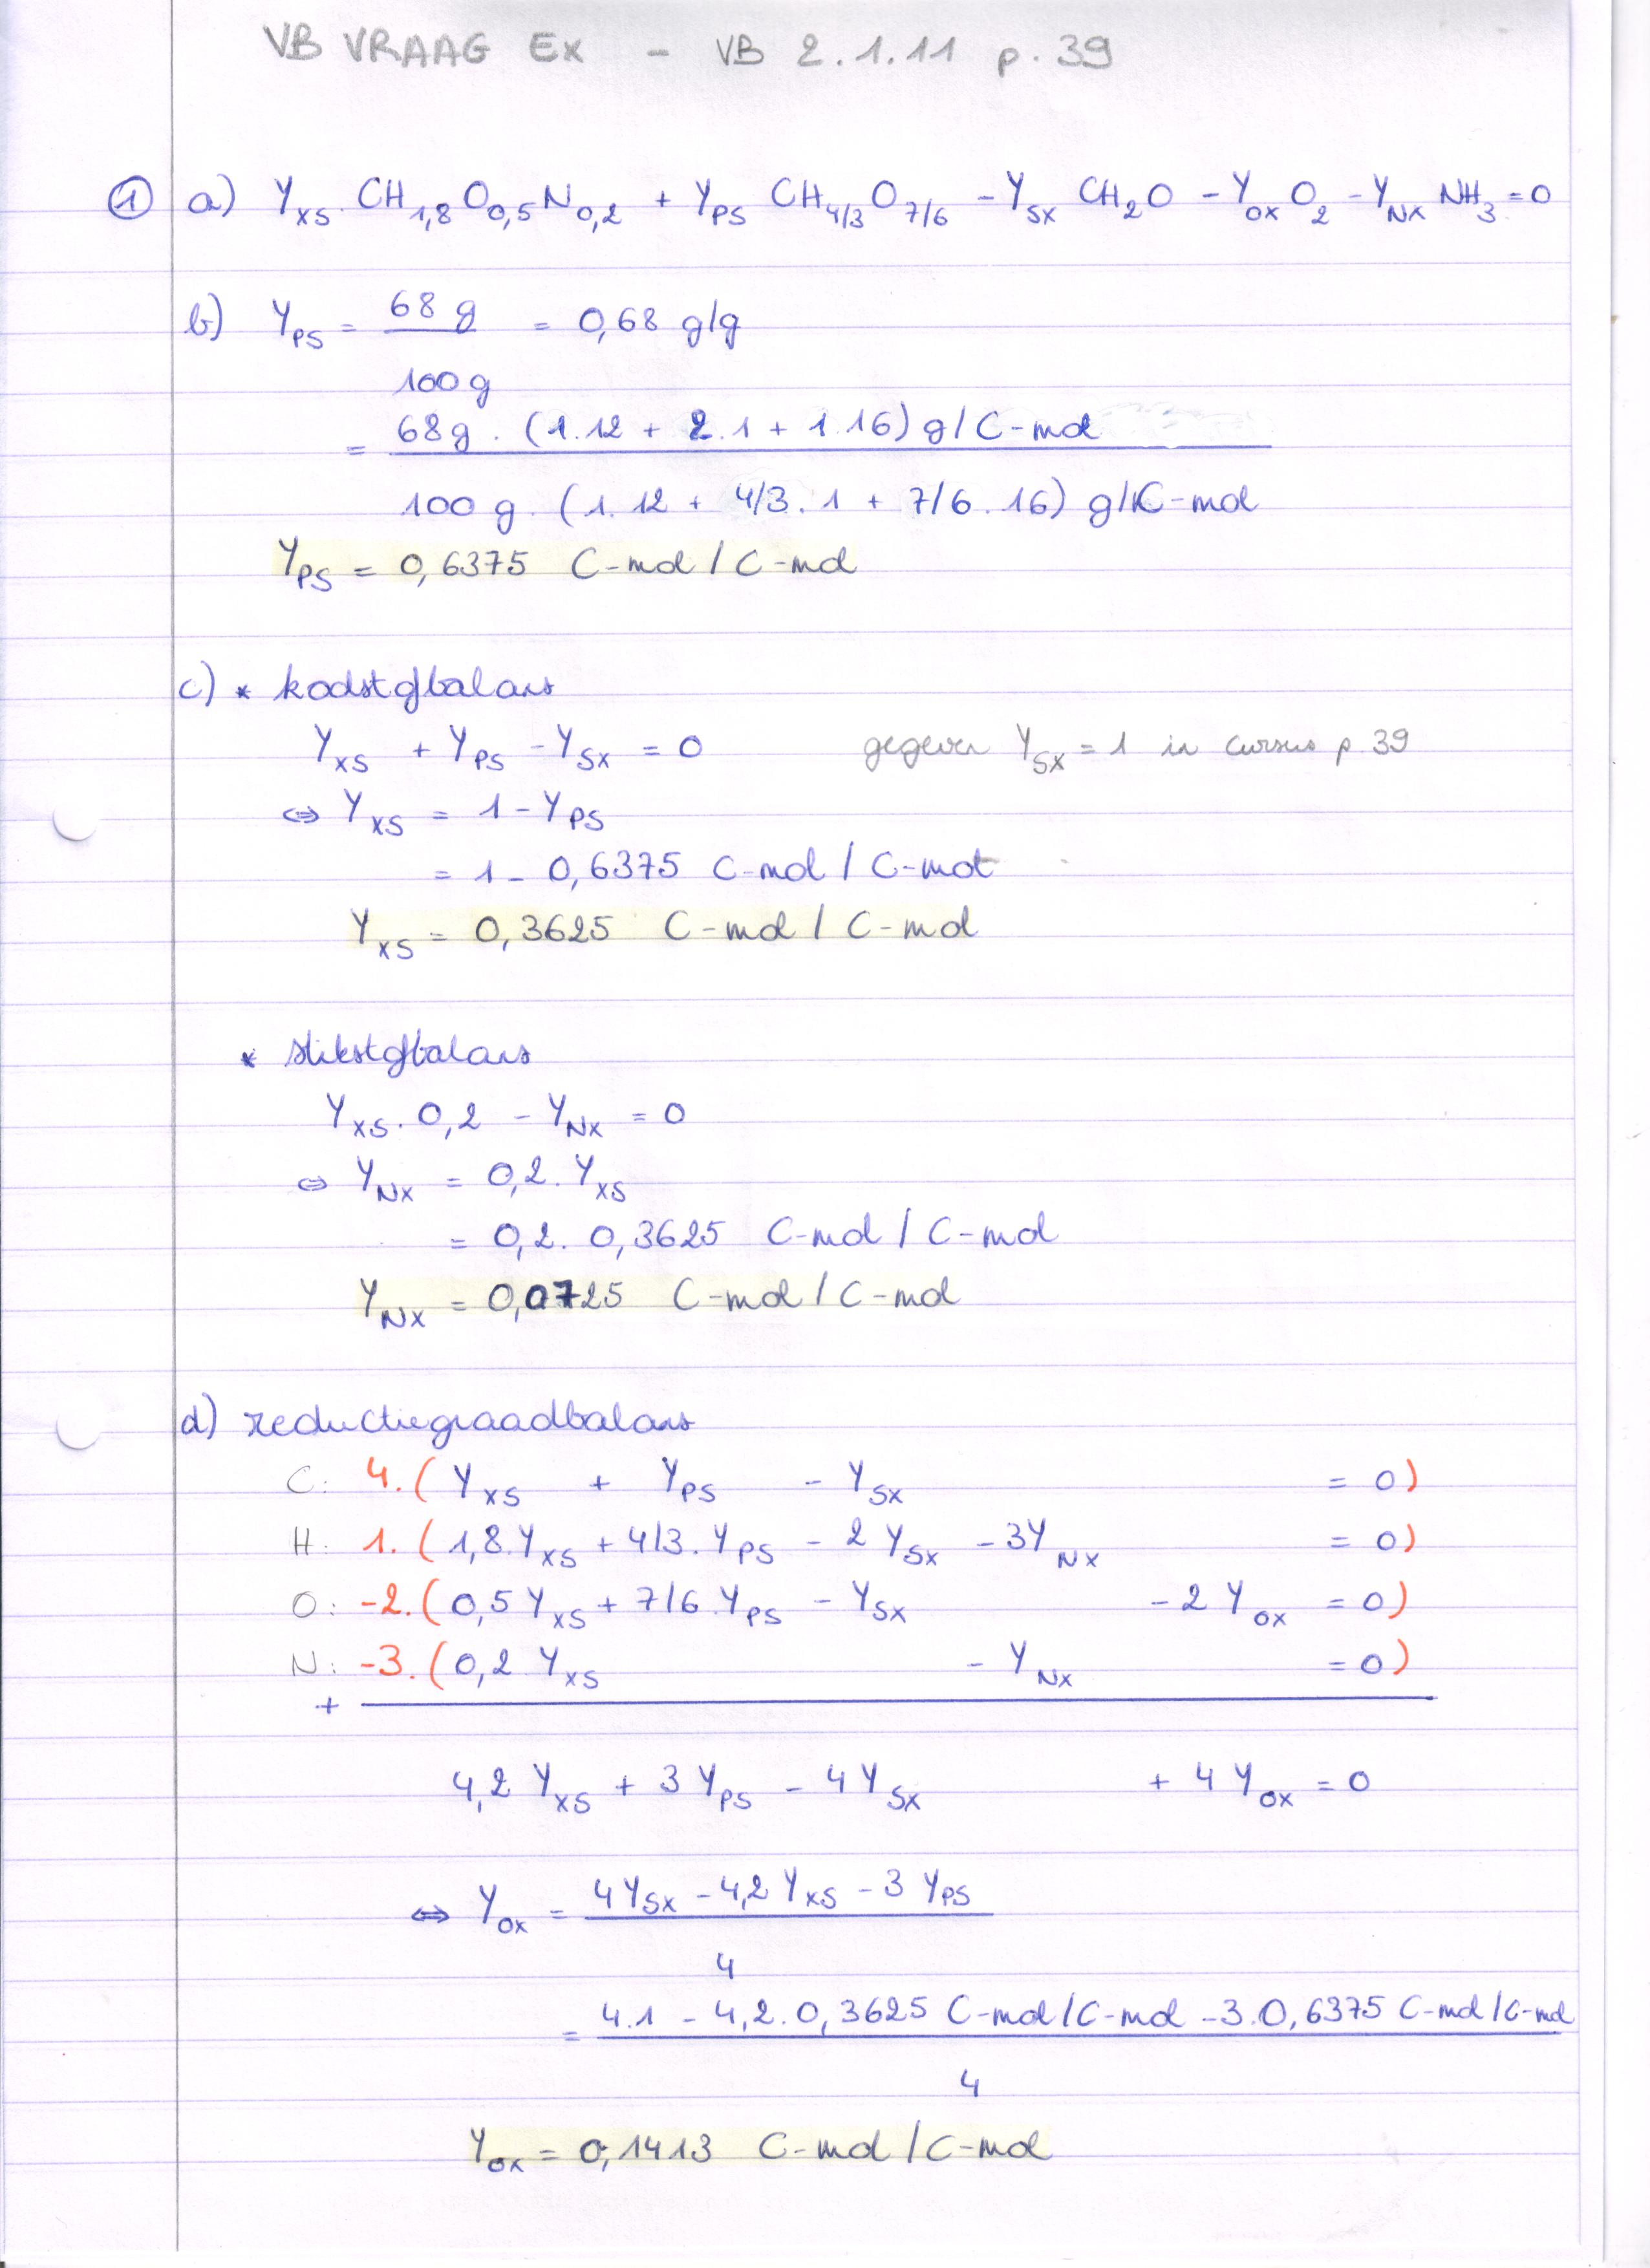 VB VRAAG EX - VB 2.1.11 p. 39
① a) Y_XS. CH_1,8 O_0,5 N_0,2 + Y_PS CH_4/3 O_7/6 - Y_SX CH_2O - Y_OX O_2 - Y_NX NH_3 = 0
b) Y_PS = 68 g / 100 g = 0,68 g/g
= 68g . (1.12 + 2.1 + 1.16) g/C-mol
100 g . (1.12 + 4/3.1 + 7/6.16) g/C-mol
Y_PS = 0,6375 C-mol / C-mol
c) * koolstofbalans
Y_XS + Y_PS - Y_SX = 0 gegeven Y_SX = 1 in cursus p. 39
⇔ Y_XS = 1 - Y_PS
= 1 - 0,6375 C-mol / C-mol
Y_XS = 0,3625 C-mol / C-mol
* stikstofbalans
Y_XS. 0,2 - Y_NX = 0
⇔ Y_NX = 0,2. Y_XS
= 0,2. 0,3625 C-mol / C-mol
Y_NX = 0,0725 C-mol / C-mol
d) reductiegraadbalans
C: 4. ( Y_XS + Y_PS - Y_SX = 0)
H: 1. ( 1,8.Y_XS + 4/3. Y_PS - 2 Y_SX - 3Y_NX = 0)
O: -2. ( 0,5 Y_XS + 7/6. Y_PS - Y_SX - 2 Y_OX = 0)
N: -3. ( 0,2 Y_XS - Y_NX = 0)
+
4,2 Y_XS + 3 Y_PS - 4 Y_SX + 4 Y_OX = 0
⇔ Y_OX = 4Y_SX - 4,2 Y_XS - 3 Y_PS
4
= 4.1 - 4,2. 0,3625 C-mol/C-mol - 3. 0,6375 C-mol/C-mol
4
Y_OX = 0,1413 C-mol / C-mol